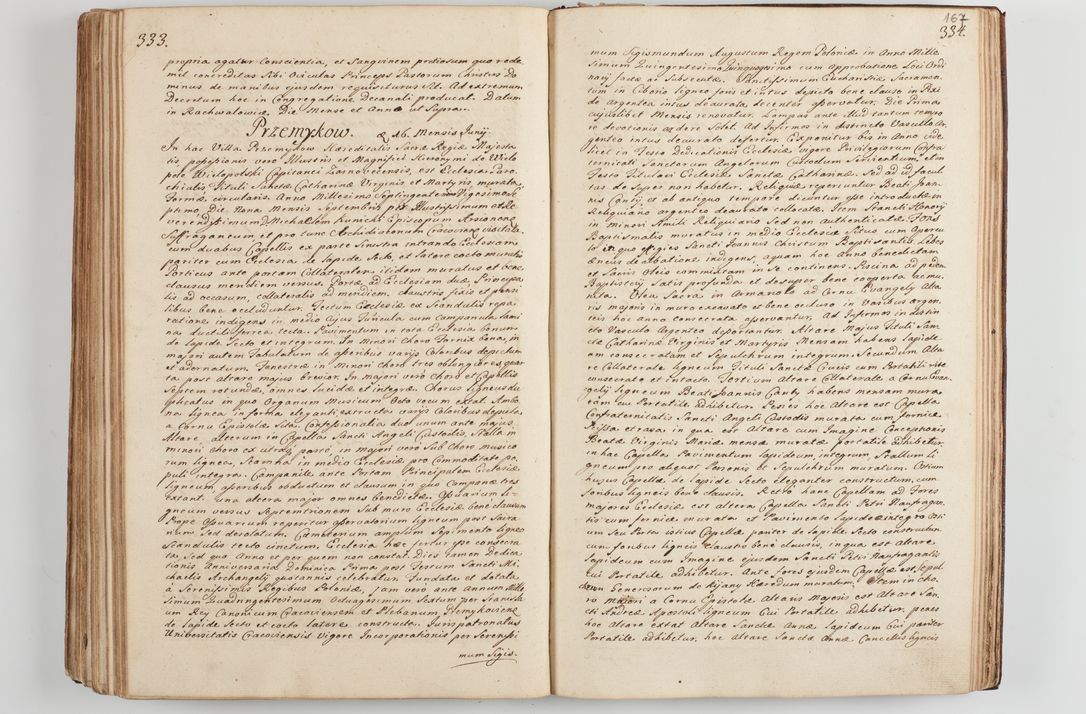 333.
propria agatur Conscientia, et Sanguinem pretiosum quo rede
mit concreditas Sibi Oviculas Princeps Pastorum Christus Do
minus de manibus ejusdem requisiturus est. Ad extremum
Decretum hoc in Congregatione Decanali producat. Datum
in Rachwalowice Die Mense et Anno ut Supra.
Przemykow. 16. Mensis Junij
In hac Villa Przemykow Hæreditatis Sacræ Regiæ Majesta
tis, possessionis vero Illustris et Magnifici Hieronymi de Wielo
pole Wielopolski Capitanei Zarnovecensis, est Ecclesia Paro
chialis Tituli Sanctæ Catharinæ Virginis et Martyris murata
Formæ circularis. Anno Millesimo Septingentesimo Vigesimose
ptimo Die Nona Mensis Septembris per Illustrissimum et Re
verendissimum Michaelem Kunicki Episcopum Arsianens
Suffraganeum et pro tunc Archidiaconum Cracoviens visitata
cum duabus Capellis ex parte Sinistra intrando Ecclesiam
pariter cum Ecclesia de lapide Secto, et latere cocto muratis
Porticus ante portam Collateralem itidem muratus et bene
clausus meridiem versus. Portæ ad Ecclesiam duæ, Principa
lis ad occasum, collateralis ad meridiem, claustris fixis et pensi
libus bene occluduntur. Tectum Ecclesiæ ex Scandulis repa
ratione indigens in medio cujus Turricula cum Campanula lami
na ductili ferrea tecta. Pavimentum in tota Ecclesia bonum
de lapide Secto et integrum. In Minori Choro Fornix bona, in
majori autem Tabulatum de asseribus varijs Coloribus depictum
et adornatum. Fenestræ in Minori Choro tres oblongiores, quar
ta post altare majus brevior. In majori vero Choro et Capellis
Septem rotundæ, omnes lucidæ et integræ. Chorus ligneus du
plicatus in quo Organum Musicum Octo vocum extat. Ambo
na lignea in forma eleganti extructa varijs Coloribus depicta
a Cornu Epistolæ Sita. Confessionalia duo unum ante majus
Altare, alterum in Capella Sancti Angeli Custodis, Stalla in
minori choro ex utraq parte, in majori vero Sub Choro musico
rum lignea, Scamna in medio Ecclesiæ pro Commoditate po
puli integra. Campanile ante Portam Principalem Ecclesiæ
ligneum, asseribus obductum et clausum in quo Campanæ tres
extant. una altera major omnes benedictæ. Ossuarium li
gneum versus Septemtrionem Sub muro Ecclesiæ bene clausum
Prope Ossuarium reperitur asservatorium ligneum post Sacra
rium Sed desolatum. Cæmeterium amplum Sepimento ligneo
Scandulis tecto cinctum. Ecclesia hæc fertur esse consecra
ta, Sed quo Anno et per quem non constat, dies tamen Dedica
tionis Anniversaria Dominica Prima post Festum Sancti Mi
chaelis Archangeli quotannis celebratur. Fundata et dotata
à Serenissimis Regibus Poloniæ, jam vero ante annum Mille
simum Quadringentesimum Octuagesimum Statum per Stanisla
um Rey Canonicum Cracoviensem et Plebanum Przemykoviens
de lapide Secto et cocto latere constructa. Juris patronatus
Universitatis Cracoviensis vigore Incorporationis per Serenissi
mum Sigis.
167
334.
mum Sigismundum Augustum Regem Poloniæ in Anno Mille
Simum Quingentesimo Quinquagesimo cum Approbatione Loci Ordi
narij factæ ac Subsecutæ. Sanctissimum Eucharistiæ Sacramen
tum in Ciborio ligneo foris et intus depicto bene clauso in Pixi
de argentea intus deaurata decenter asservatur. Die Prima
cujuslibet Mensis renovatur. Lampas ante illud tantum tempo
re devotionis ardere Solet. Ad Infirmos in distincto Vasculo Ar
genteo intus deaurato defertur. Exponitur bis in Anno vide
licet in Festo Dedicationis Ecclesiæ vigore Privilegiorum Confra
ternitati Sanctorum Angelorum Custodum Servientium, et in
Festo Tituli Ecclesiæ Sanctæ Catharinæ. Sed ad id facul
tas de Super non habetur. Reliquiæ reperiuntur Beati Joan
nis Cantij et ab antiquo tempore dicuntur esse introductæ in
Reliquiario argenteo deaurato collocatæ. Item Sancti Honorij
in minori Simili Reliquiario Sed non authenticatæ. Fons
Baptismalis muratus in medio Ecclesiæ Situs cum Opercu
lo in quo effigies Sancti Joannis Christum Baptisantis. Lebes
æneus dealbatione indigens, aquam hoc Anno benedictam
et Sacris Oleis commixtam in Se continens. Piscina ad pedem
Baptisterij Satis profunda et desuper bene cooperta ac mu
nita. Olea Sacra in Armariolo ad Cornu Evangelij Alta
ris majoris in muro excavato et bene occluso in Vasibus argen
teis hoc Anno Consecrata asservantur. Ad Infirmos in distin
cto Vasculo Argenteo deportantur. Altare Majus Tituli San
ctæ Catharinæ Virginis et Martyris Mensam habens lapide
am consecratam et Sepulchrum integrum. Secundum Alta
re Collaterale ligneum Tituli Sanctæ Crucis cum Portatili rite
consecrato et intacto. Tertium Altare Collaterale a Cornu Evan
gelij ligneum Beati Joannis Cantij habens mensam mura
tam cui Portatile adhibetur. Penes hoc Altare est Capella
Confraternitatis Sancti Angeli Custodis murata cum fornice
Fissa et rasa, in qua est Altare cum Imagine Conceptionis
Beatæ Virginis Mariæ mensæ muratæ portatile adhibetur,
in hac Capella Pavimentum lapideum, integrum, Scallum li
gneum pro aliquot Personis et Sepulchrum muratum. Ostium
hujus Capellæ de lapide Secto eleganter constructum, cum
foribus ligneis bene clausis. Retro hanc Capellam ad Fores
majores Ecclesiæ est altera Capella Sancti Petri Naufragan
tis cum fornice murata et Pavimento lapideo integro Osti
um Seu Portæ istius Capellæ pariter de lapide Secto constructum
cum foribus ligneis claustro bene clausis, in qua est altare
lapideum cum Imagine ejusdem Sancti Petri Naufragantis
cui Portatile adhibetur. Ante Fores ejusdem Capellæ est Sepul
chrum Generosorum de Lijany Hæredum muratum. Item in cho
ro Majori a Cornu Epistolæ Altaris Majoris est Altare San
cti Andreæ Apostoli ligneum Cui Portatile adhibetur, penes
hoc Altare extat Altare Sanctæ Annæ lapideum Cui pariter
Portatile adhibetur, hoc Altare Sanctæ Annæ Cancellis ligneis